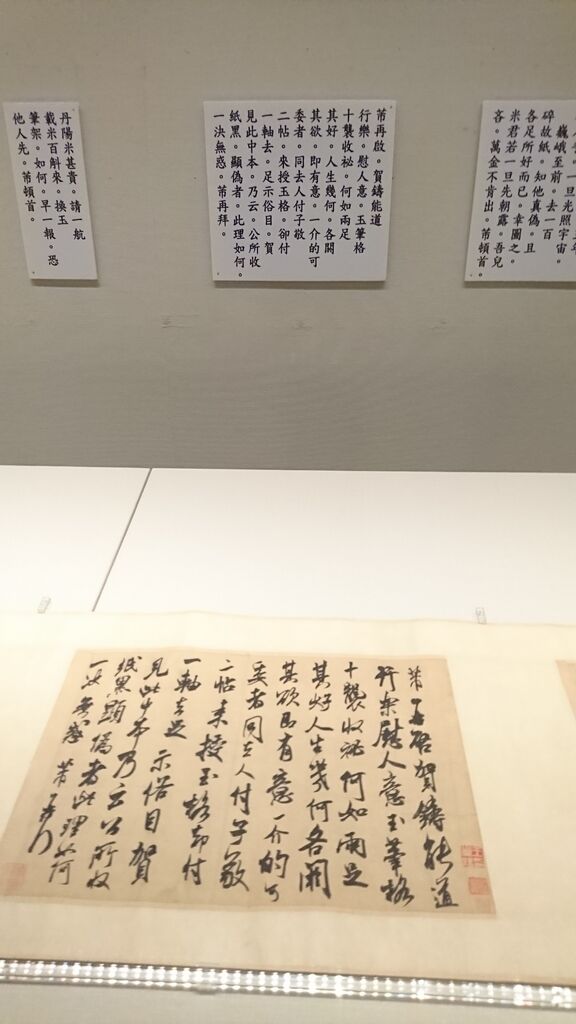 一旦光照宇宙。
巍峨至前。去一百
碎故紙。知他真偽。且
各足所好而已。幸圖之。
米君若一旦先朝露。吾兒
吝。萬金不肯出。芾頓首
芾再啟。賀鑄能道
行樂。慰人意。玉筆格
十襲收祕。何如兩足
其好。人生幾何。各關
其欲。即有意。一介的可
委者。同去人付子敬
二帖。來授玉格。卻付
一軸去。足示俗目。賀
見此中本。乃云。公所收
紙黑。顯偽者。此理如何。
一決無惑。芾再拜。
丹陽米甚貴。請一航
載米百斛來。換玉
筆架。如何。早一報。恐
他人先。芾頓首。
芾再啟賀鑄能道
行樂慰人意玉筆格
十襲收祕何如兩足
其好人生幾何各關
其欲即有意一介的可
委者同去人付子敬
二帖來授玉格卻付
一軸去足示俗目賀
見此中本乃云公所收
紙黑顯偽者此理如何
一決無惑芾再拜